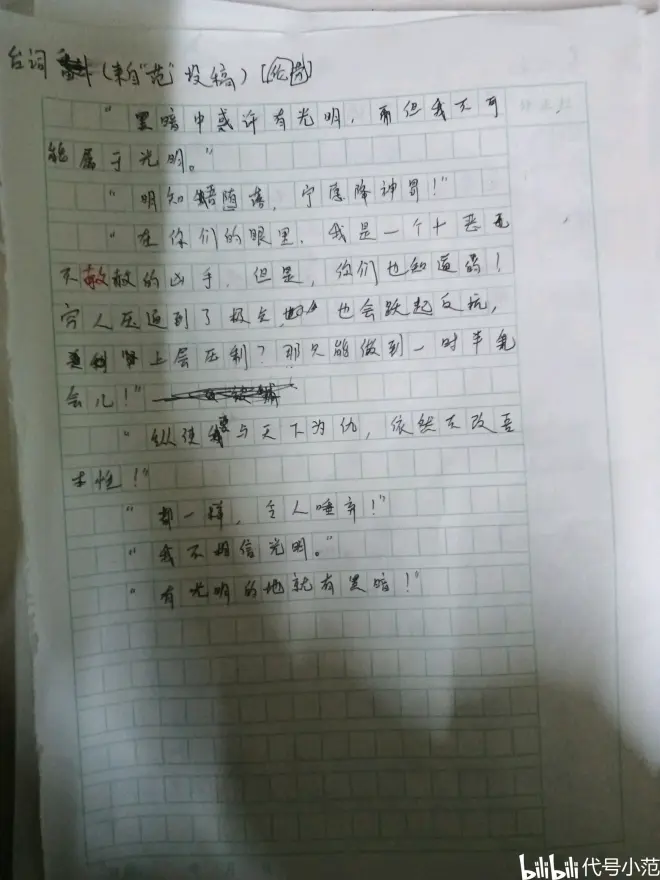 台词（来自“范”投稿）
“黑暗中或许有光明，而但我不可
能属于光明。”
“明知堕落，宁愿降神罚！”
“在你们的眼里，我是一个十恶无
不赦的凶手，但是，你们也知道吗！
穷人压迫到了极点，也会跃起反抗，
上层压制？那只能做到一时半兔
会儿！”
“纵使我与天下为仇，依然不改吾
本性！”
“都一样，令人唾弃！”
“我不相信光明。”
“有光明的地就有黑暗！”
bilibili 代号小范